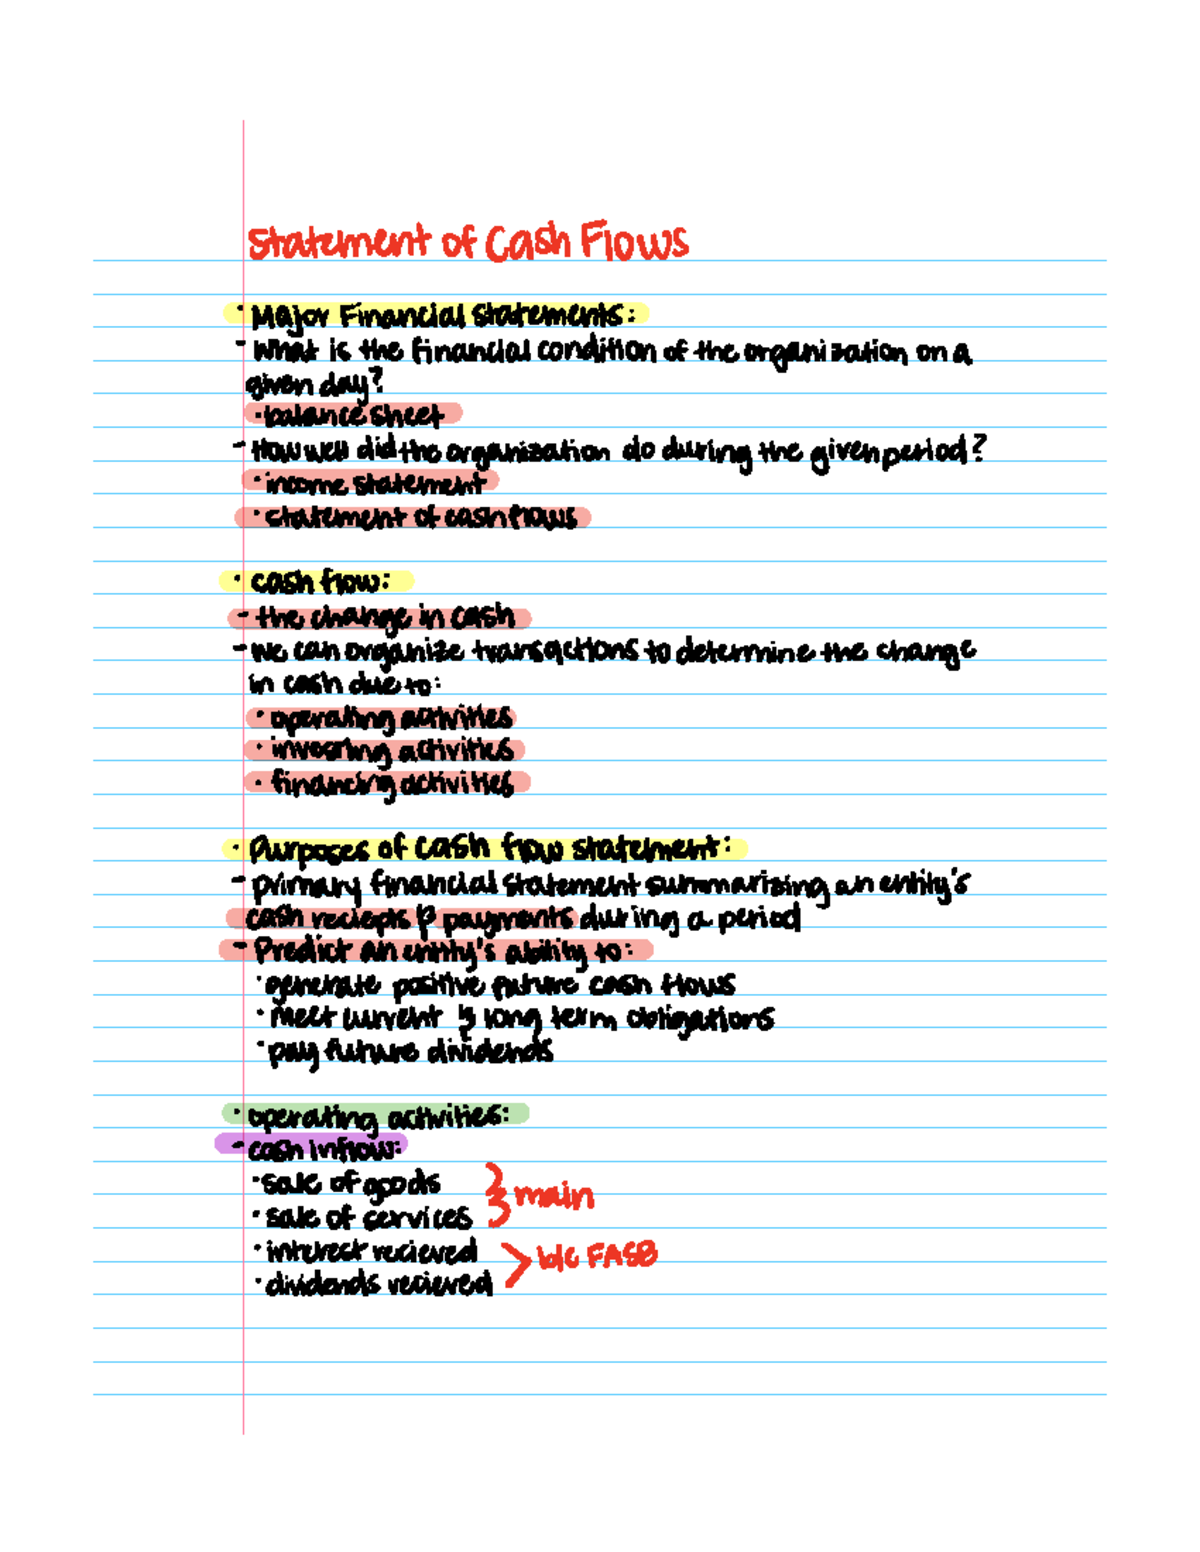 Statement of Cash Flows
· Major Financial Statements:
- What is the financial condition of the organization on a
given day?
· balance sheet
- How well did the organization do during the given period?
· income statement
· statement of cash flows
· cash flow:
- the change in cash
- We can organize transactions to determine the change
in cash due to:
· operating activities
· investing activities
· financing activities
· Purposes of cash flow statement:
- primary financial statement summarizing an entity's
cash reciepts & payments during a period
- Predict an entity's ability to:
· generate positive future cash flows
· meet current & long term obligations
· pay future dividends
· operating activities:
- cash inflow:
· sale of goods
· sale of services
main
· interest recieved
· dividends recieved
b/c FASB